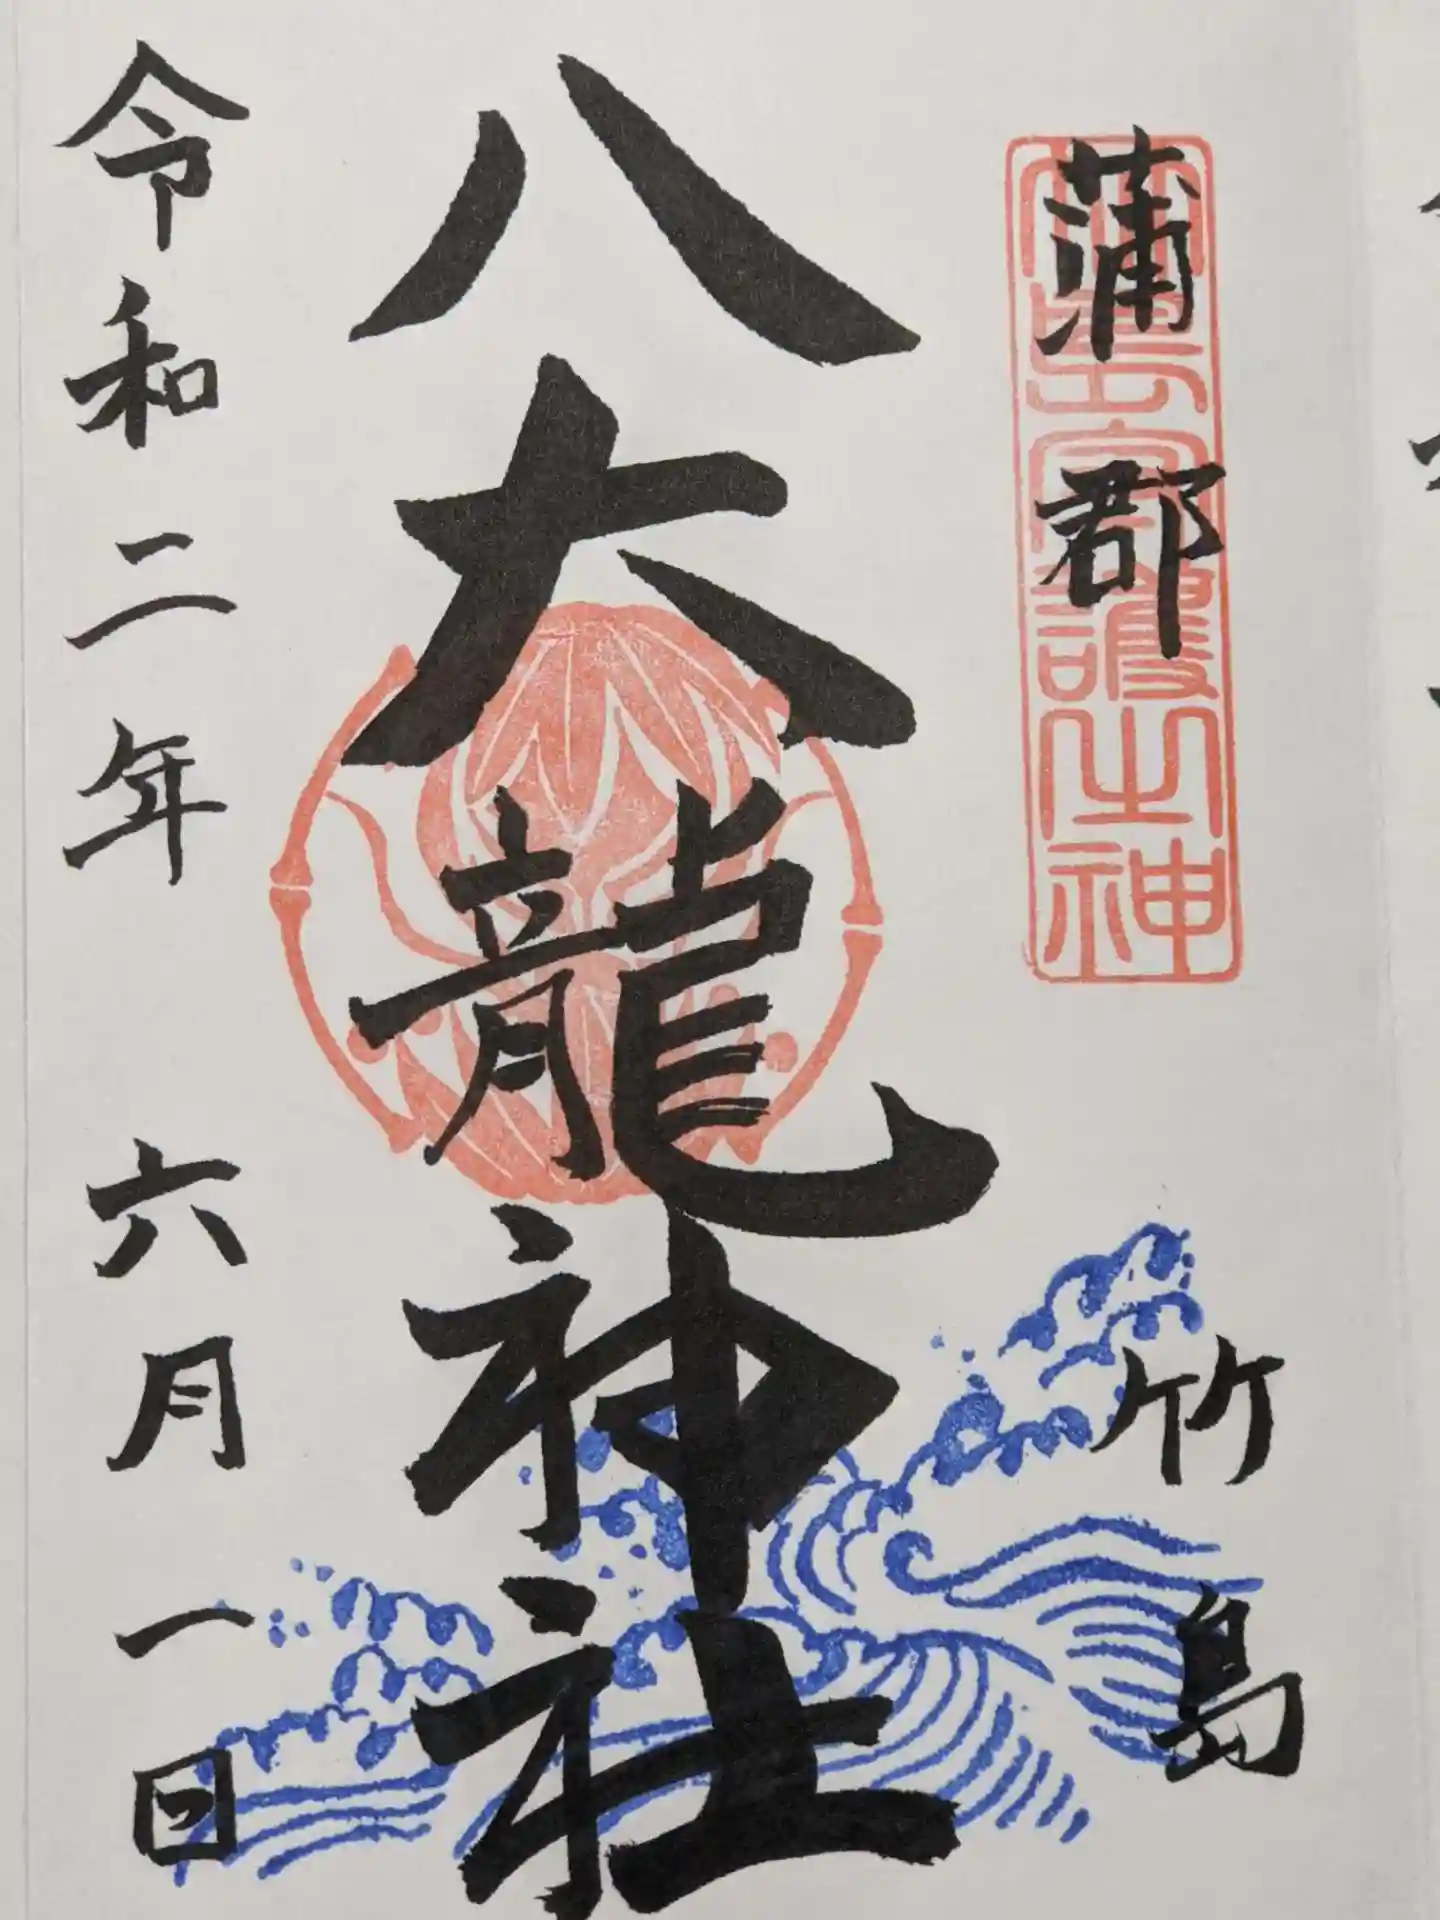 蒲郡
竹島
竹島守護之神
八大龍神社
令和二年 六月一日